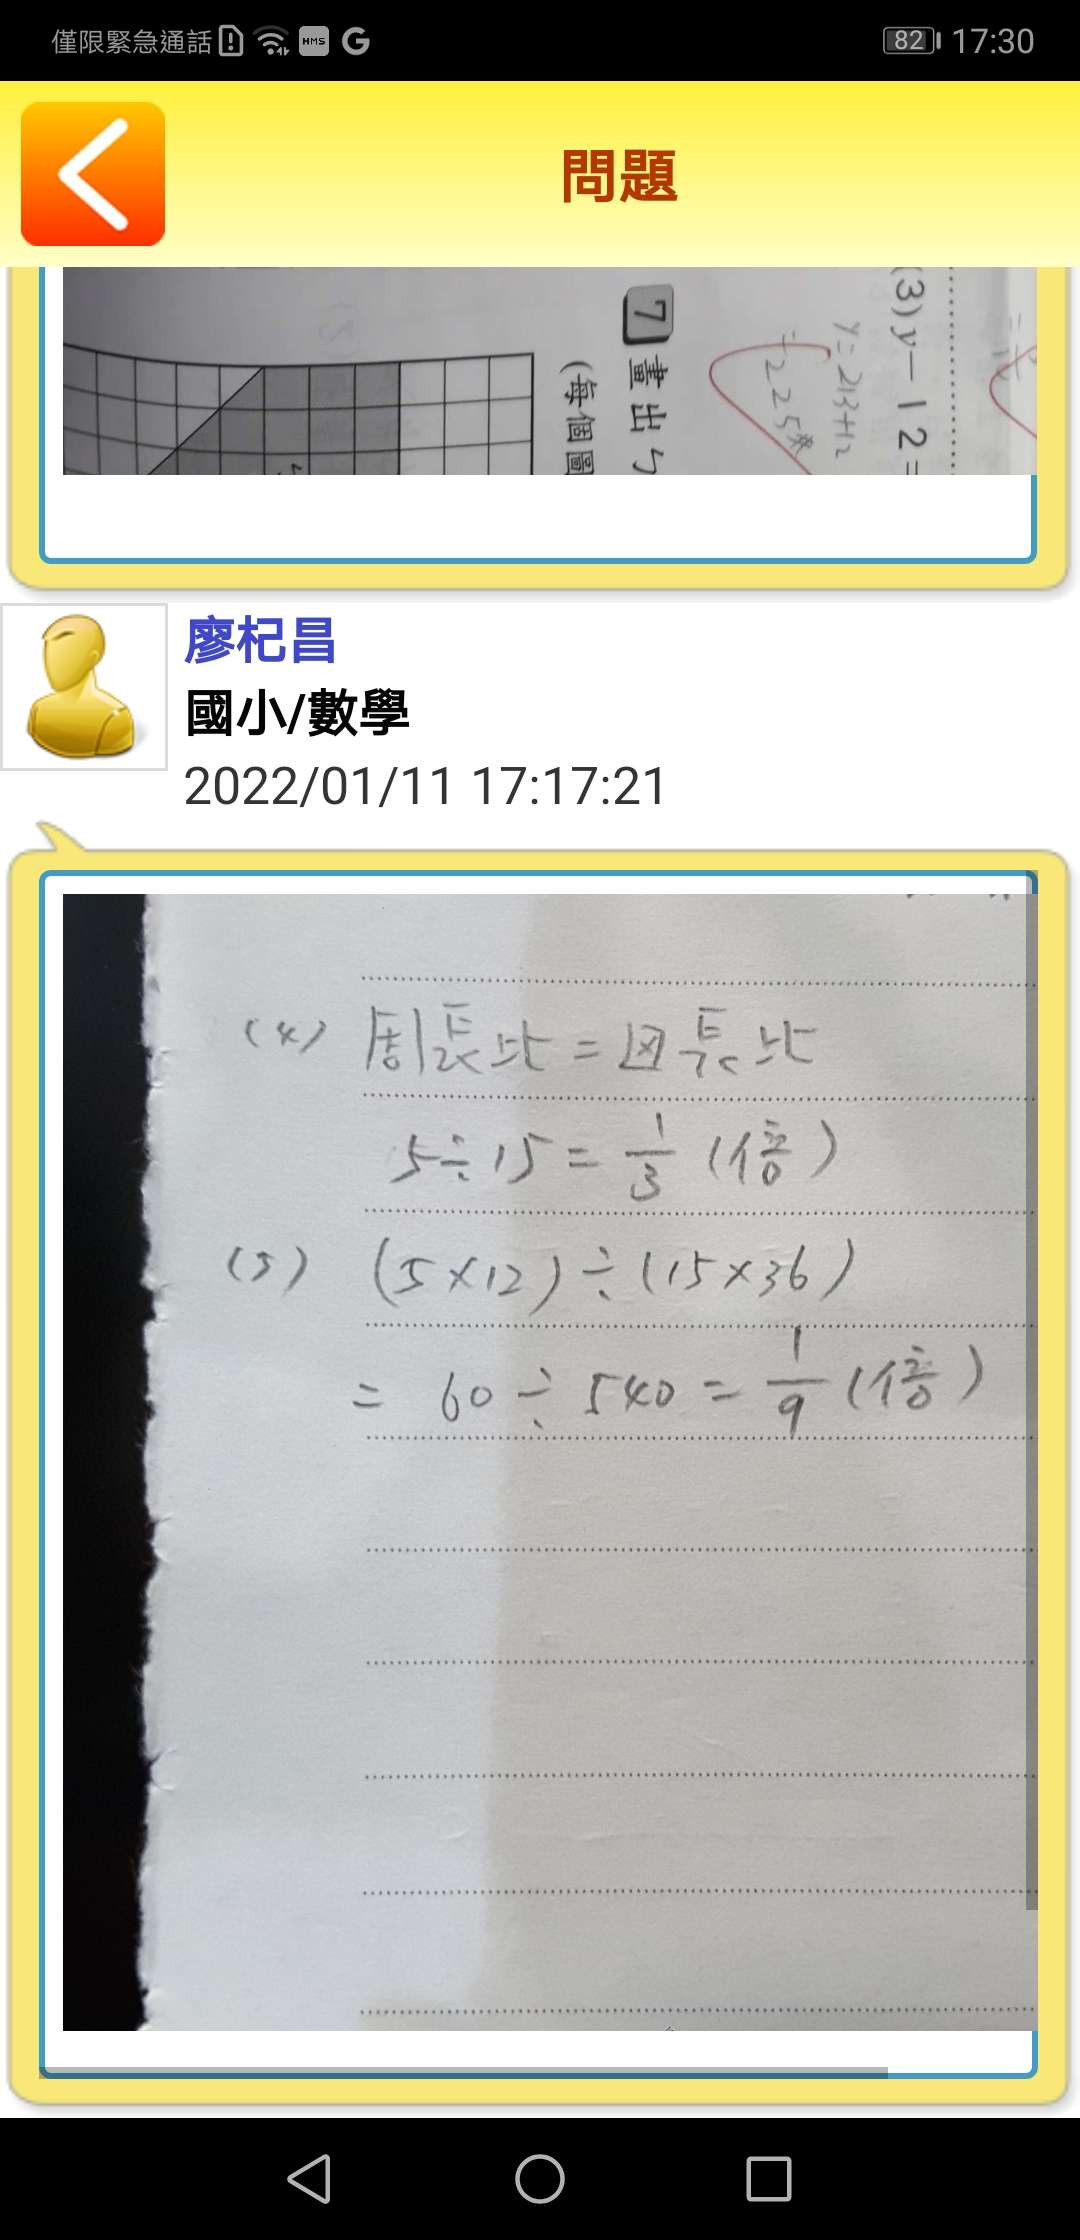 僅限緊急通話 HMS G 82 17:30
問題
(3) y－12=
y=213+12
=225#
7 畫出ㄅ
(每個圖
廖杞昌
國小/數學
2022/01/11 17:17:21
(4) 周長比=因長比
5÷15=1/3 (倍)
(5) (5×12)÷(15×36)
= 60÷540=1/9 (倍)